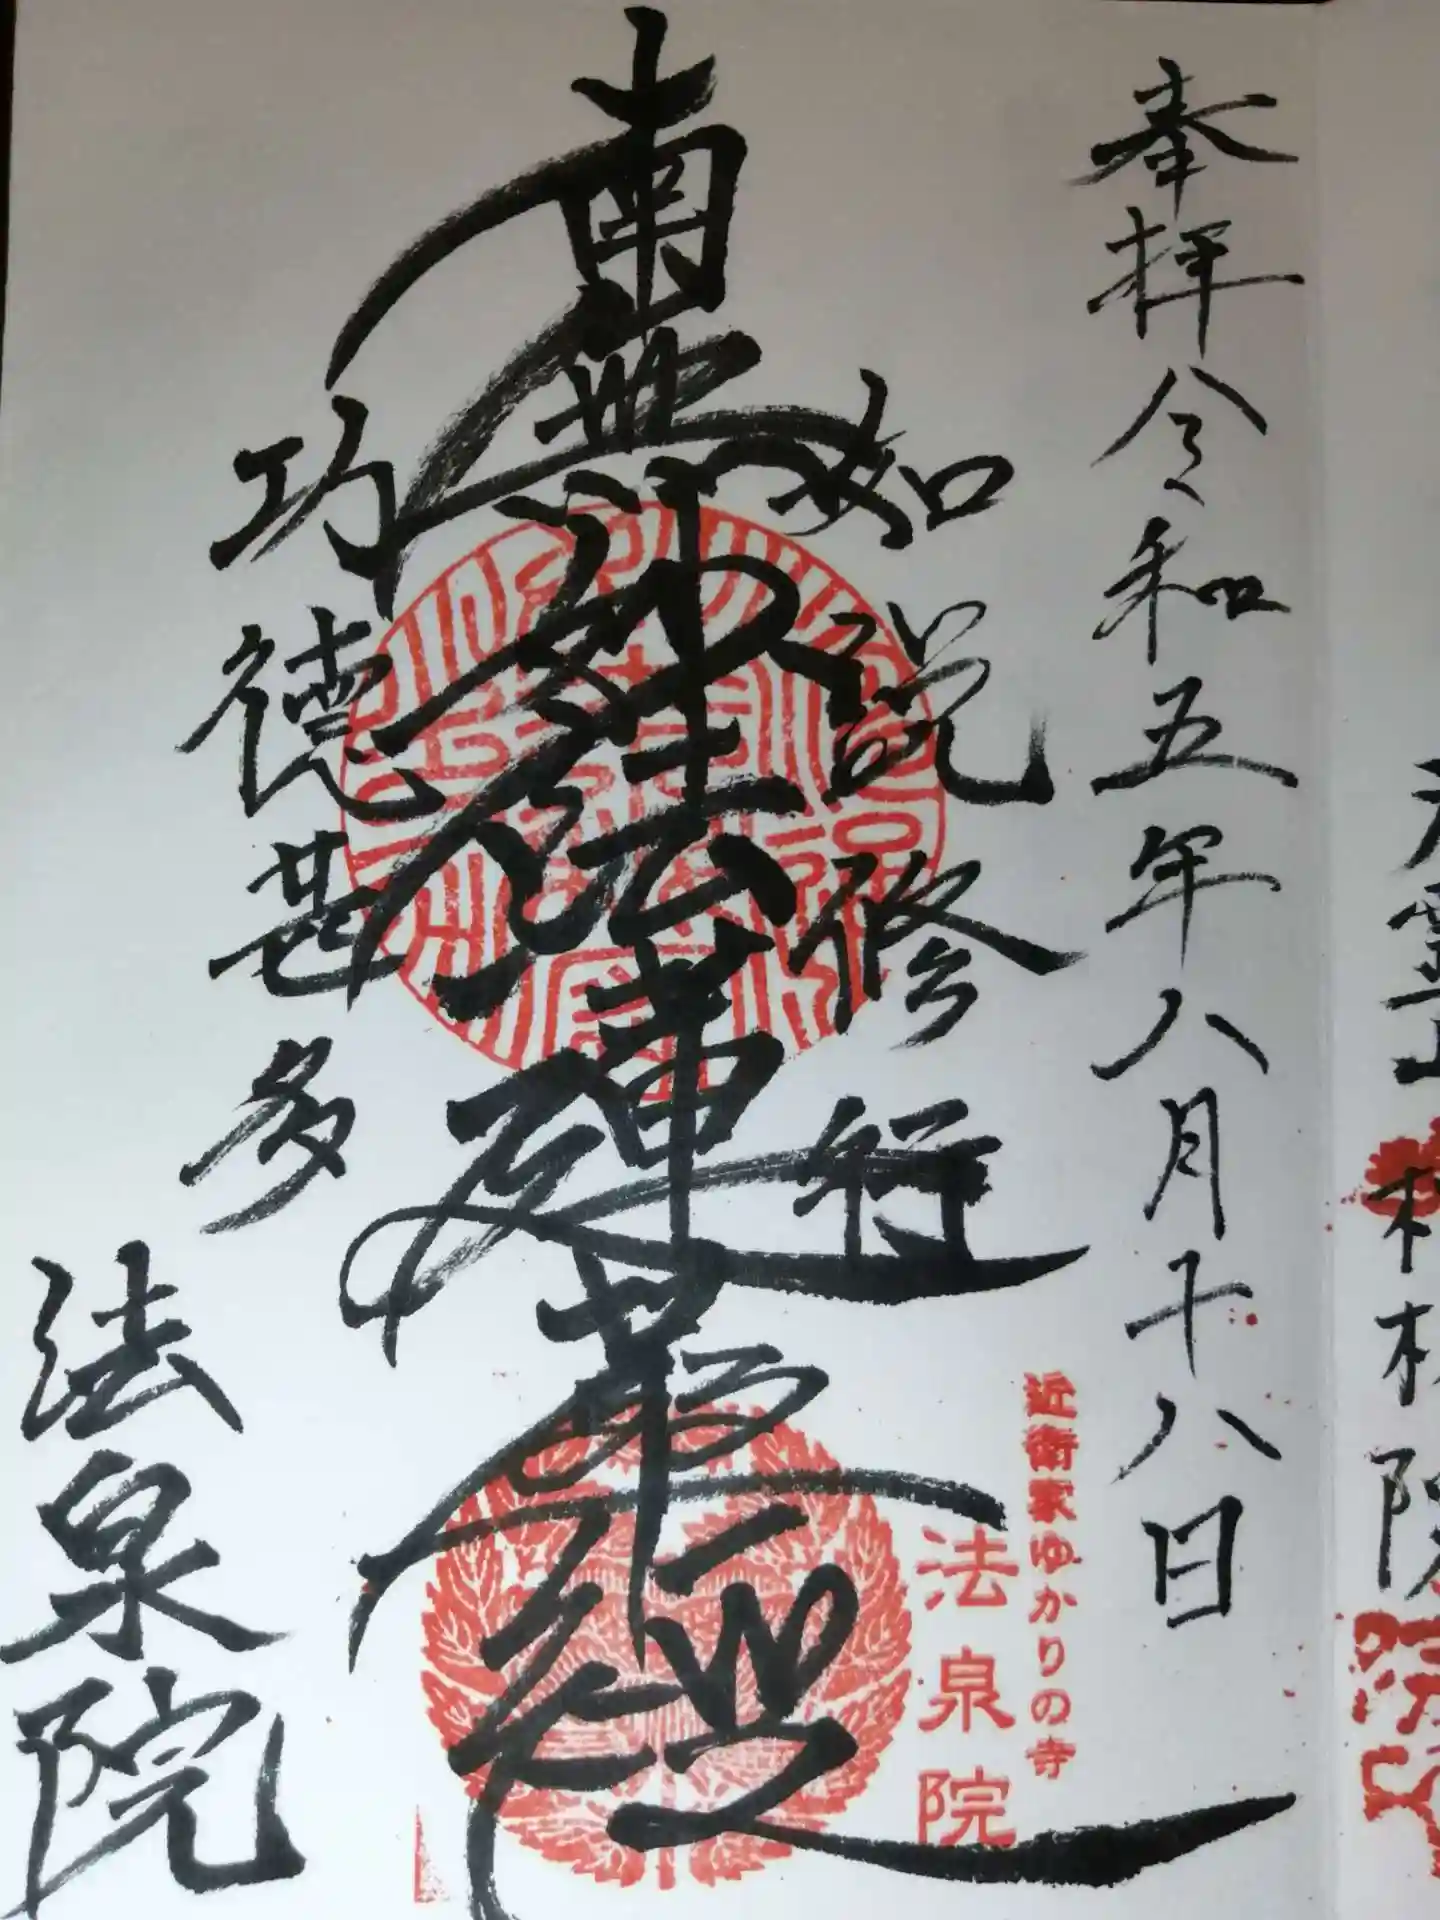 奉拝 令和五年八月十八日
如説修行
南無妙法蓮華経
功徳甚多
法泉院
近衛家ゆかりの寺
法泉院